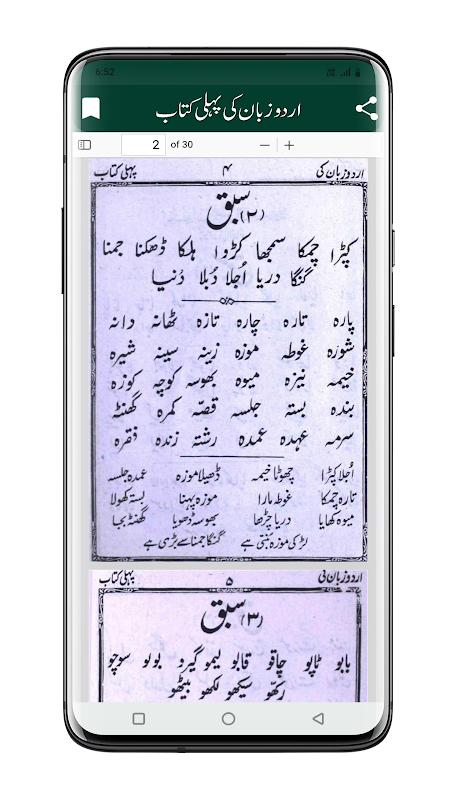 6:52
اردو زبان کی پہلی کتاب
2 of 30
اردو زبان کی ۴ پہلی کتاب
سبق (۲)
کپڑا چمکا سمجھا کڑوا ہلکا ڈھکنا جمنا
گنگا دریا اُجلا دُبلا دُنیا
پارہ تارہ چارہ تازہ ٹھانہ دانہ
شورہ غوطہ موزہ زینہ سینہ شیرہ
خیمہ نیزہ میوہ بھوسہ کوچہ کوزہ
بندہ بستہ جلسہ قصّہ کمرہ گھنٹہ
سرمہ عہدہ عمدہ رشتہ زندہ فقرہ
اُجلا کپڑا چھوٹا خیمہ ڈھیلا موزہ عمدہ جلسہ
تارہ چمکا غوطہ مارا موزہ پہنا بستہ کھولا
میوہ کھایا دریا چڑھا بھوسہ ڈھویا گھنٹہ بجا
لڑکی موزہ بُنتی ہے گنگا جمنا سے بڑی ہے
اردو زبان کی ۵ پہلی کتاب
سبق (۳)
بابو ٹاپو چاقو قابو لیمو گیرو بولو سوچو
رکھو سیکھو لکھو بیٹھو